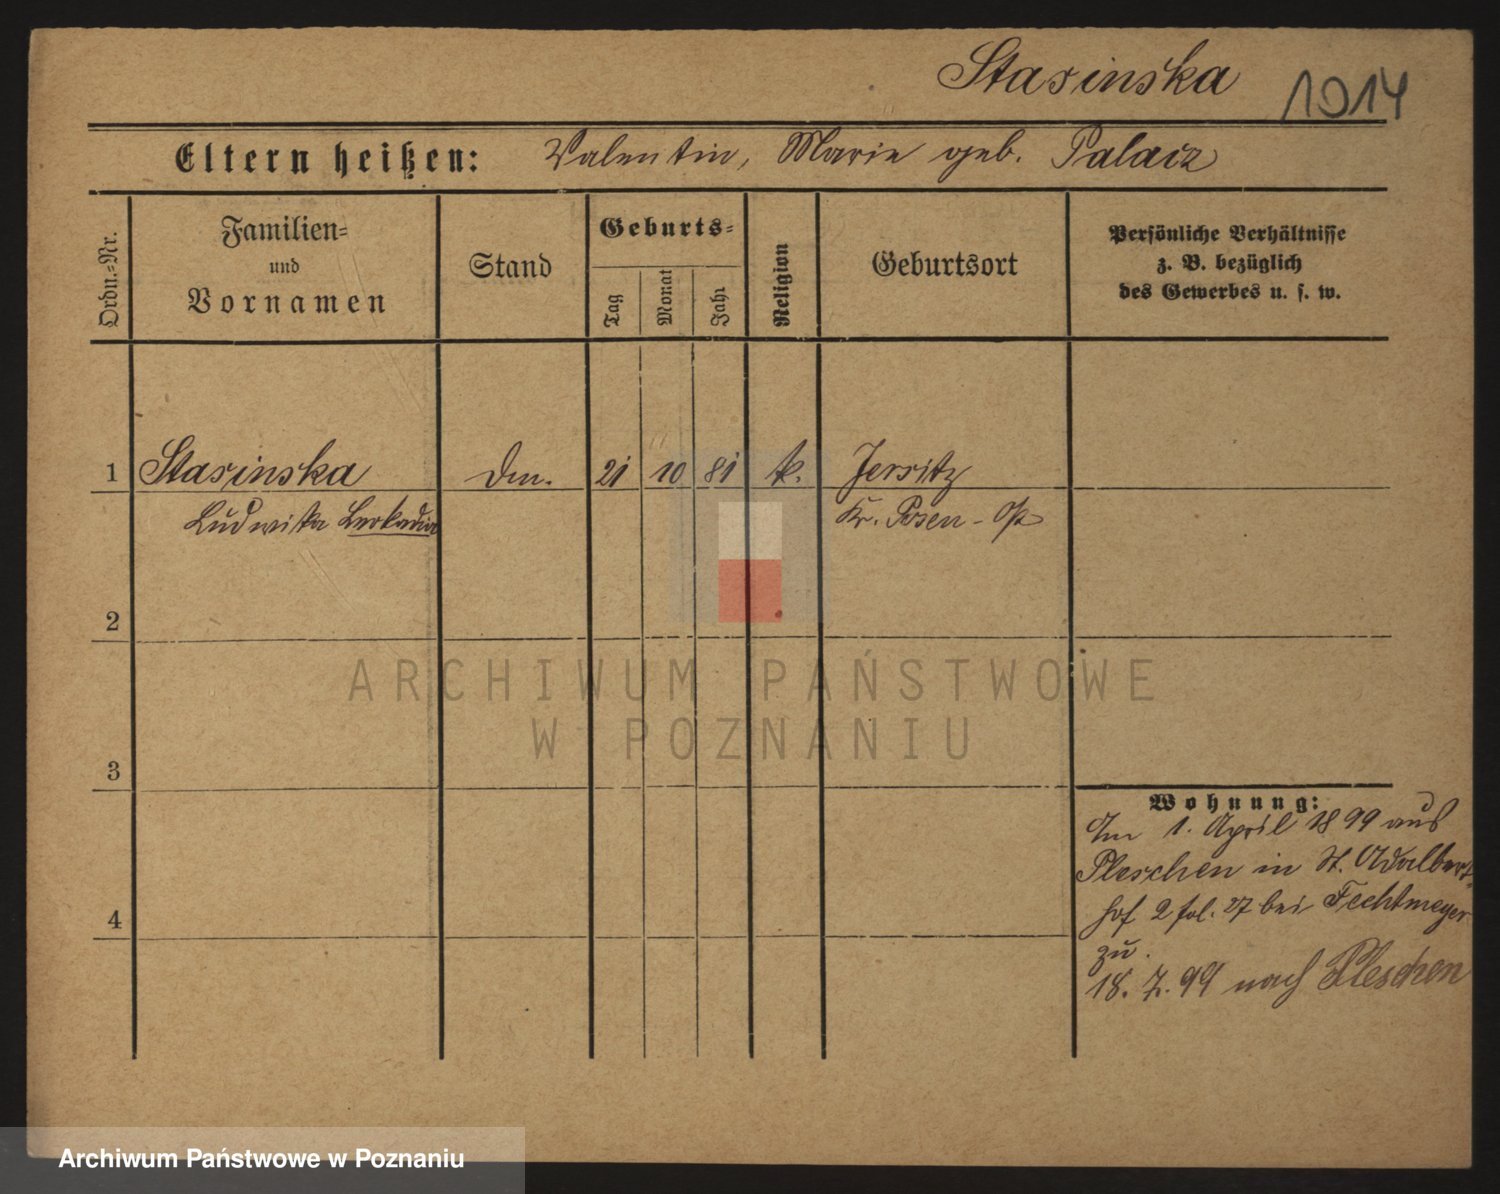 Stasinska 1914
Eltern heißen: Valentin, Marie geb. Palacz
Ordn.=Nr.
Familien=
und
Vornamen
Stand
Geburts=
Tag
Monat
Jahr
Religion
Geburtsort
Persönliche Verhältnisse
z. B. bezüglich
des Gewerbes u. s. w.
1 Stasinska 21 10 81 k. Jersitz
Ludwika Leokadia Kr. Posen-Ost
2
ARCHIWUM PAŃSTWOWE
W POZNANIU
3
Wohnung:
Am 1. April 1899 aus
Pleschen in St. Adalbert-
hof 2 fol. 27 bei Fechtmeyer
zu.
4
18. 7. 99 nach Pleschen
Archiwum Państwowe w Poznaniu